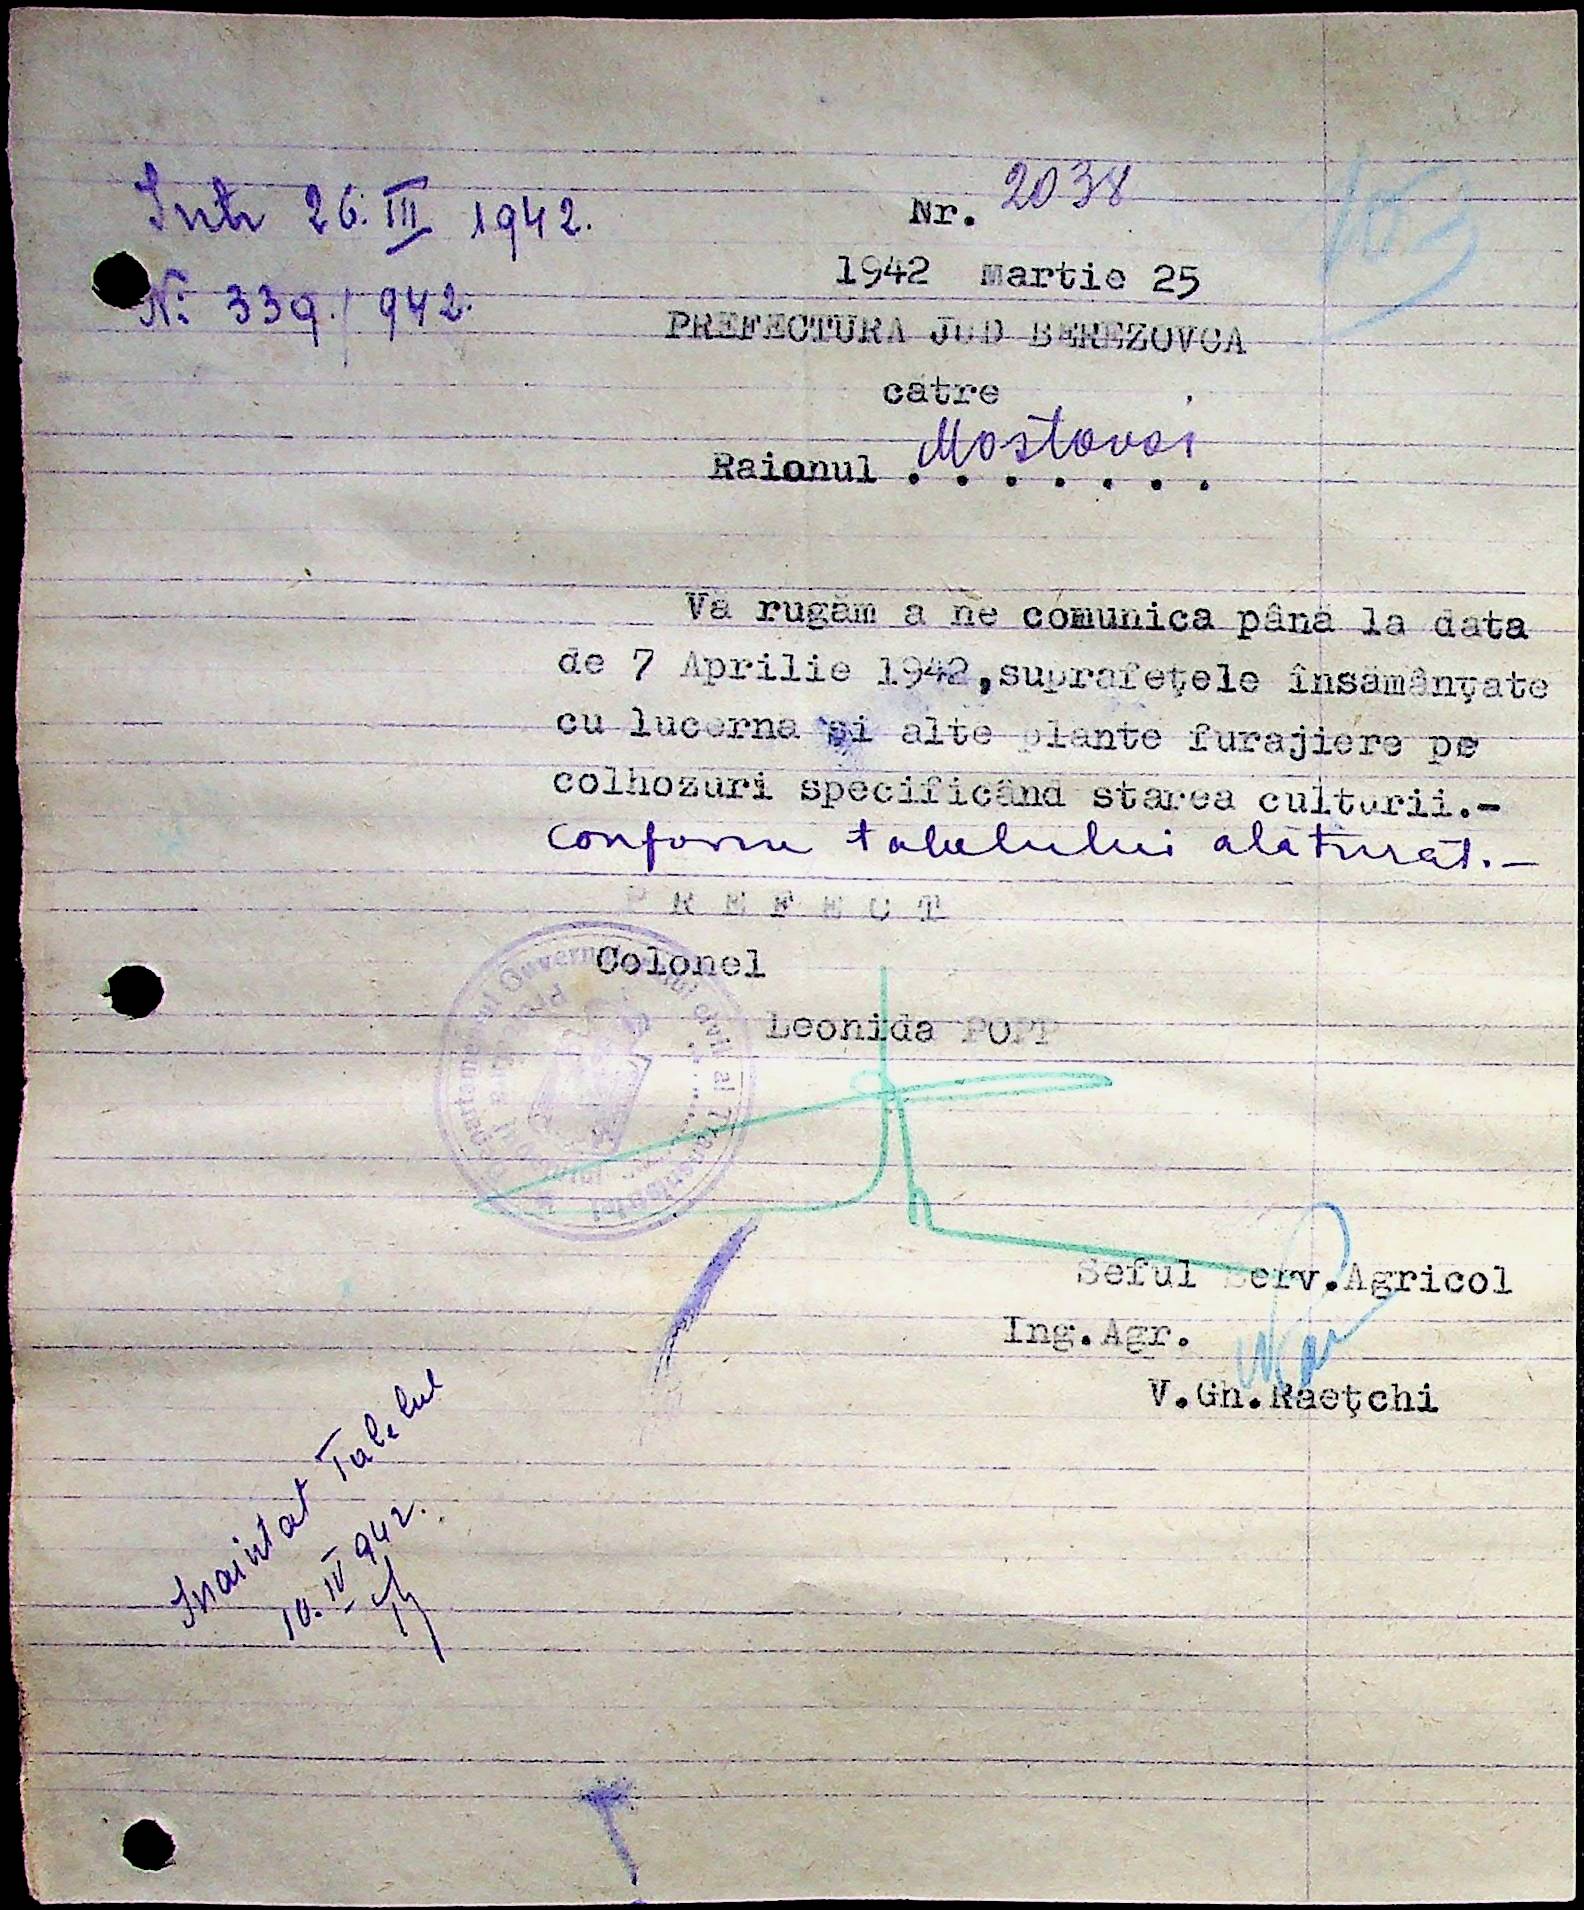 Intr 26. III 1942.
Nr. 339./942.
Nr. 2038
1942 Martie 25
PREFECTURA JUD BEREZOVCA
catre
Raionul Mostovoi
Vă rugăm a ne comunica până la data
de 7 Aprilie 1942,suprafeţele însămânţate
cu lucerna şi alte plante furajiere pe
colhozuri specificând starea culturii.-
conform tabelului alăturat.-
P R E F E C T
Colonel
Leonida POPP
Guvernământului civil al Transnistriei
Seful Serv.Agricol
Ing.Agr.
V.Gh.Raeţchi
Inaintat Tabelul
10. IV 942.